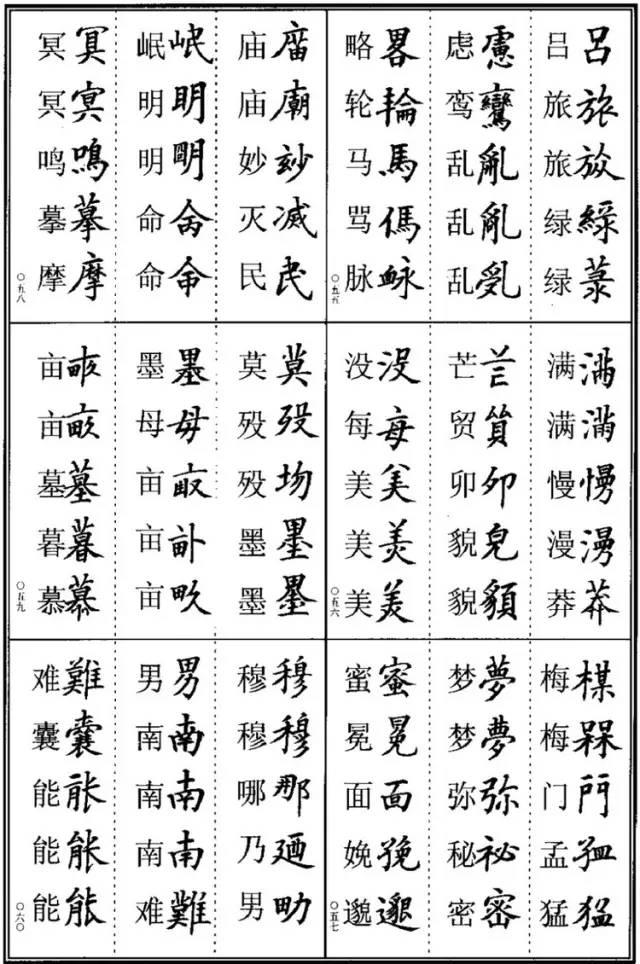 吕呂
旅旅
旅
绿緑
绿菉
虑慮
鸾鸞
乱亂
乱亂
乱
略畧
轮輪
马馬
骂傌
脉
〇五五
满满
满满
慢慢
漫漫
莽莽
芒芒
贸貿
卯夘
貌皃
貌
没没
每每
美美
美美
美美
〇五六
梅楳
梅槑
门門
孟
猛猛
梦夢
梦夢
弥弥
秘祕
密密
蜜蜜
冕冕
面面
娩㝃
邈邈
〇五七
庙庿
庙廟
妙玅
灭滅
民民
岷岷
明眀
明朙
命
命命
冥冥
冥冥
鸣鳴
摹摹
摩摩
〇五八
莫莫
殁歿
殁圽
墨墨
墨墨
墨墨
母母
亩
亩畆
亩畂
亩畞
亩畝
墓墓
暮暮
慕慕
〇五九
穆穆
穆穆
哪那
乃廼
男
男男
南南
南南
南南
难難
难難
囊囊
能能
能能
能能
〇六〇